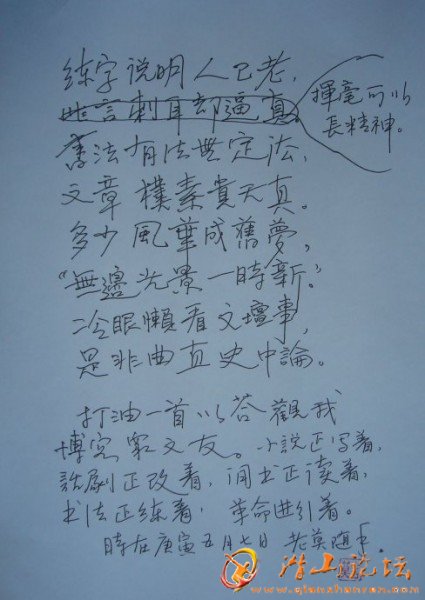 练字说明人已老，
此言刺耳却逼真。
揮毫可以
長精神。
書法有法無定法，
文章樸素貴天真。
多少風華成舊夢，
“無邊光景一時新。”
冷眼懶看文壇事，
是非曲直史中論。
打油一首以答觀我
博客衆文友。小說正写着，
話劇正改着，闲书正读着，
书法正練着，革命进行着。
時在庚寅五月七日 老莫随
潜山论坛
www.qianshanren.com